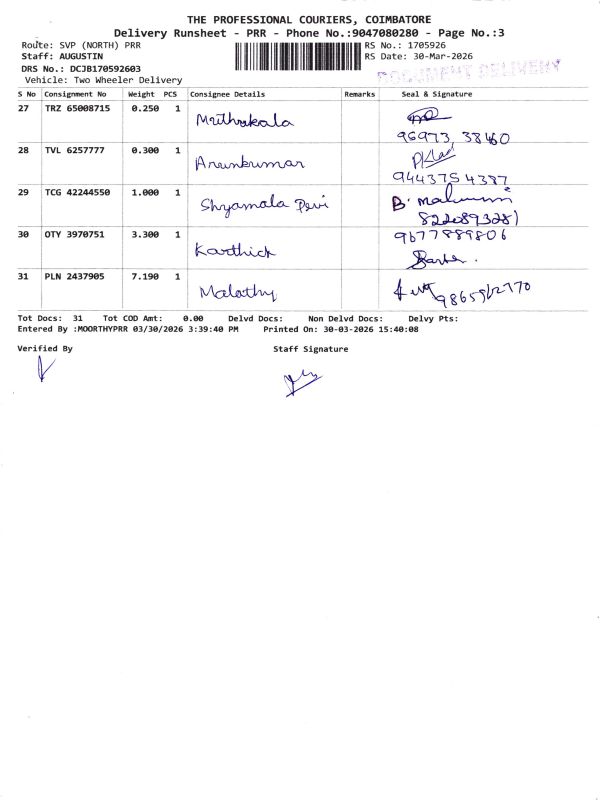 THE PROFESSIONAL COURIERS, COIMBATORE
Delivery Runsheet - PRR - Phone No.:9047080280 - Page No.:3
Route: SVP (NORTH) PRR
RS No.: 1705926
Staff: AUGUSTIN
RS Date: 30-Mar-2026
DRS No.: DCJB170592603
DOCUMENT DELIVERY
Vehicle: Two Wheeler Delivery
S No Consignment No Weight PCS Consignee Details Remarks Seal & Signature
27 TRZ 65008715 0.250 1 Mrithrakala
96973 38460
28 TVL 6257777 0.300 1 Arunkumar
9443754387
29 TCG 42244550 1.000 1 Shyamala Devi B.
8220893281
30 OTY 3970751 3.300 1 Karthick 9677889806
31 PLN 2437905 7.190 1 Malathy
Tot Docs: 31 Tot COD Amt: 0.00 Delvd Docs: Non Delvd Docs: Delvy Pts:
Entered By :MOORTHYPRR 03/30/2026 3:39:40 PM Printed On: 30-03-2026 15:40:08
Verified By Staff Signature